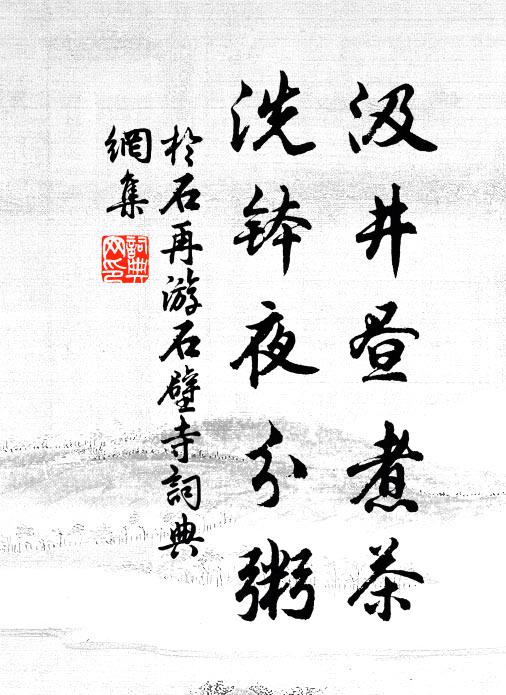 汲井昼煮茶
洗鉢夜分粥
於石再游石壁寺詞典
網集
詞典網印